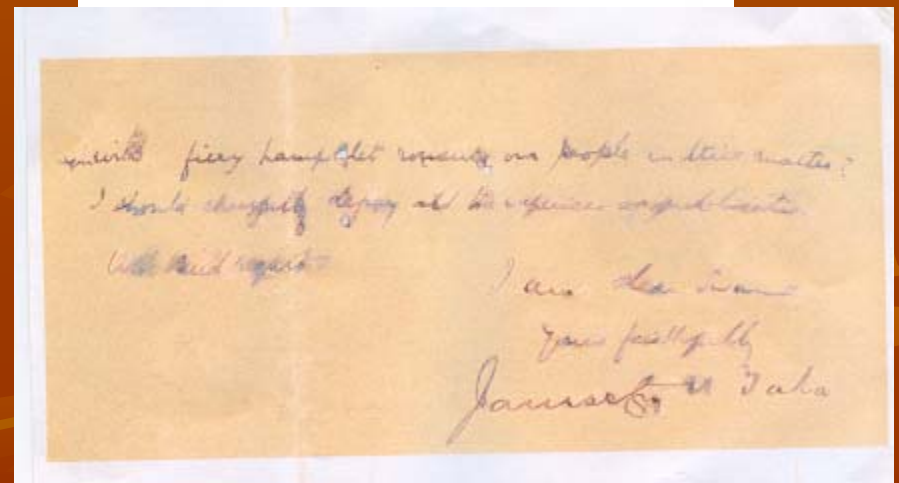 fiery pamphlet rousing our people in this matter?
I should cheerfully defray all the expenses of publication.
With kind regards
I am dear Swami
Yours faithfully
Jamsetji N Tata